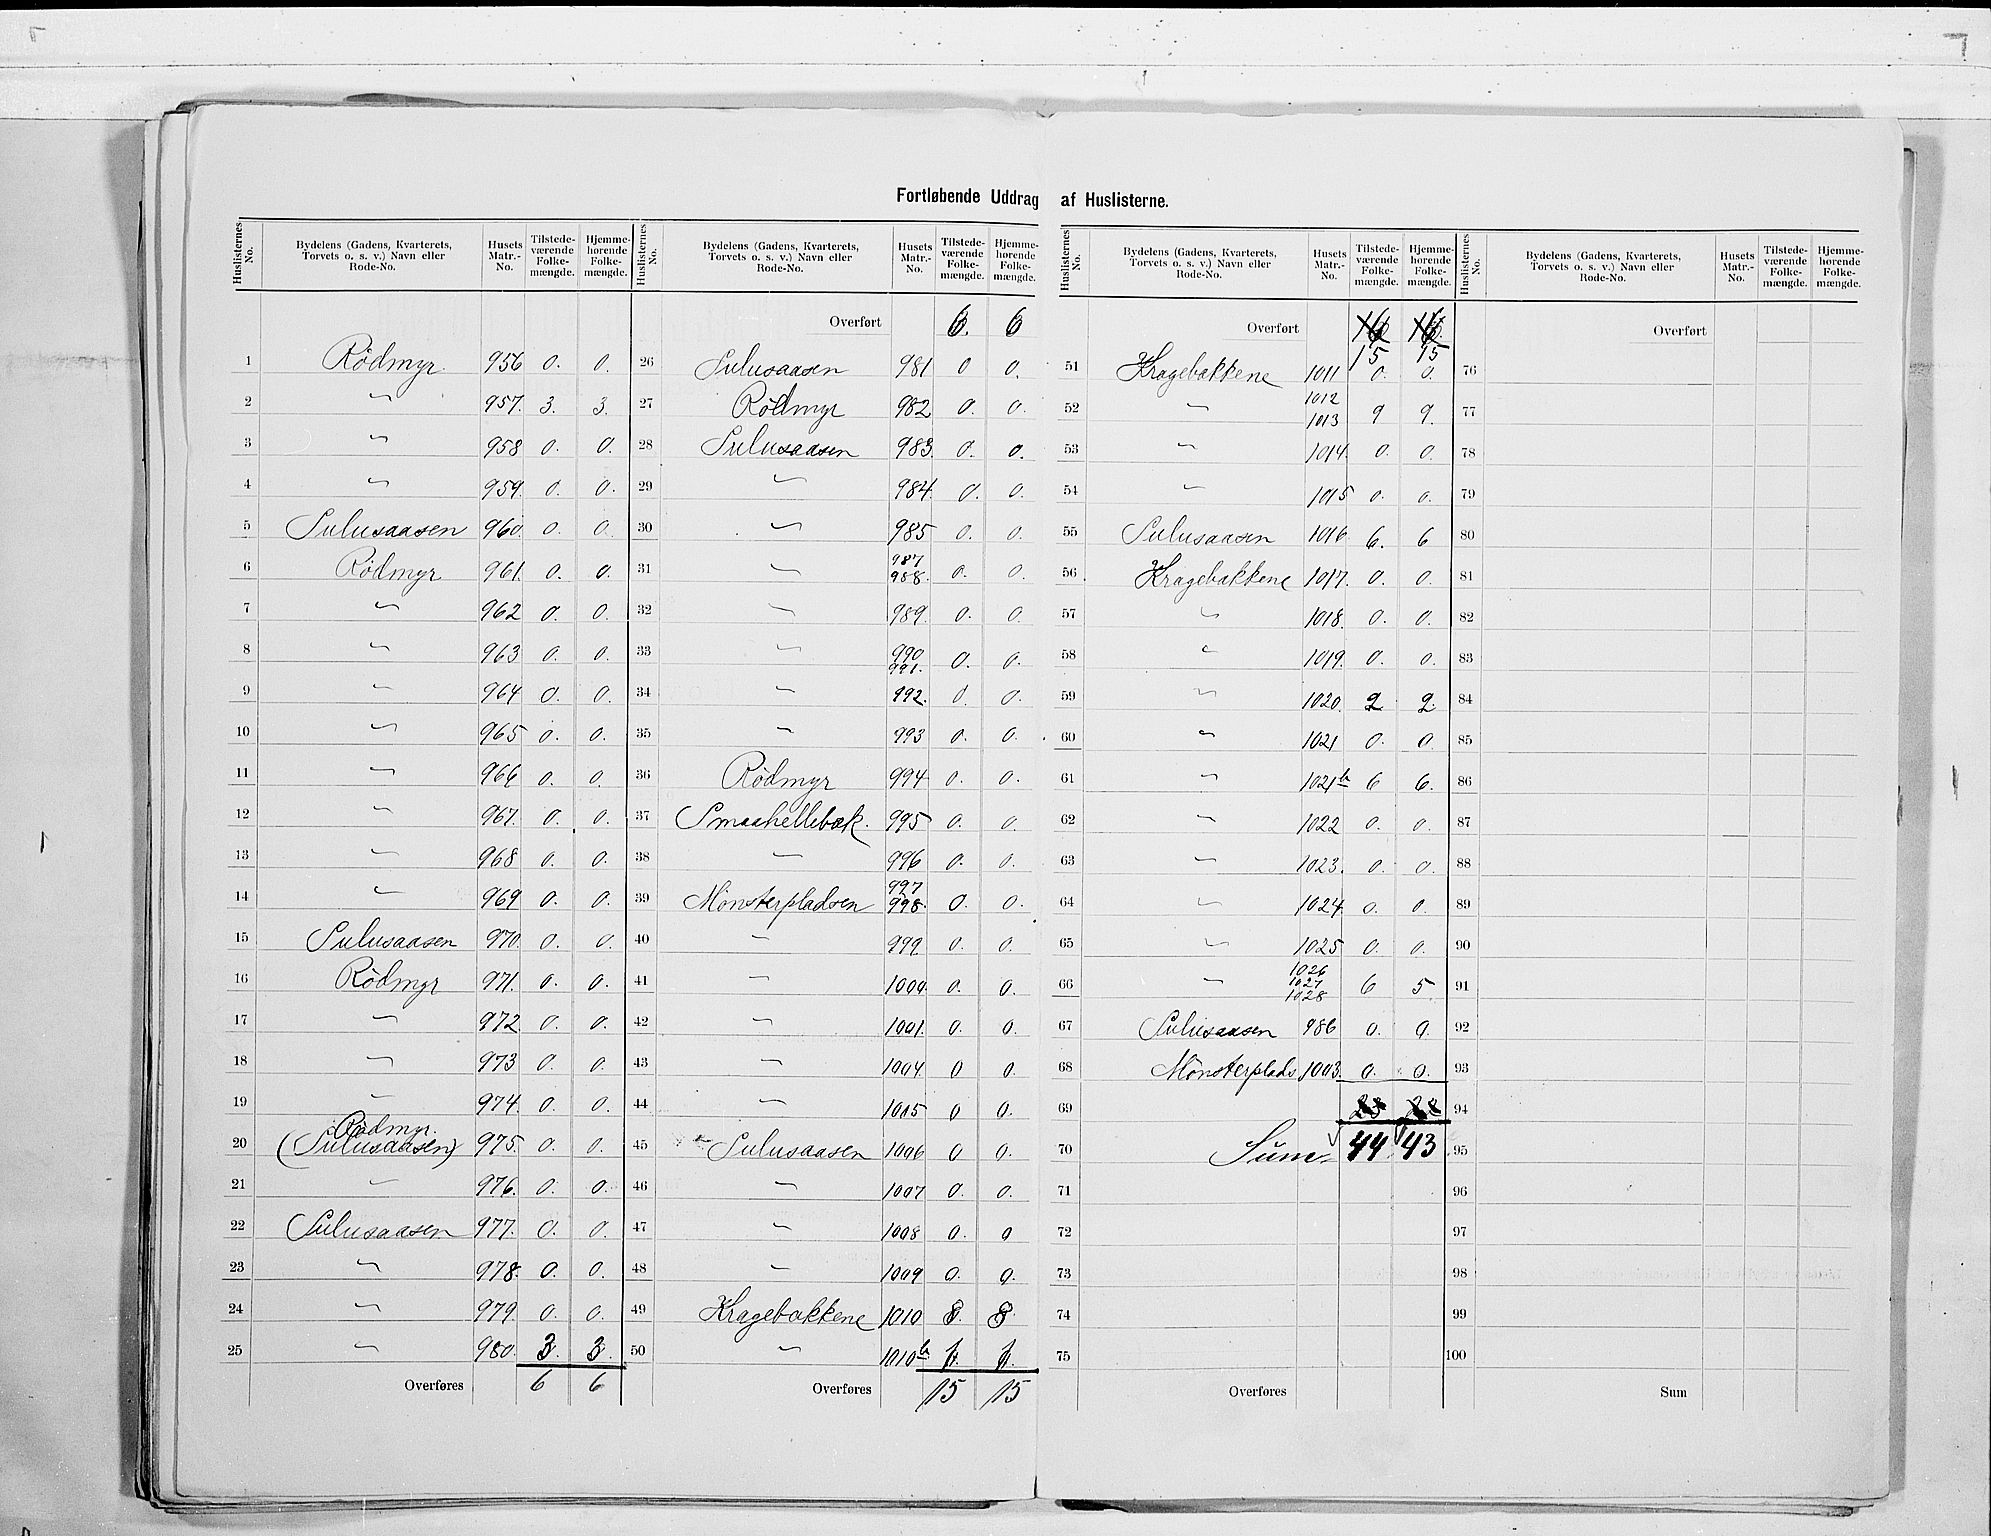 Fortløbende Uddrag af Huslisterne.
Huslisternes No. Bydelens (Gadens, Kvarterets, Torvets o. s. v.) Navn eller Rode-No. Husets Matr.-No. Tilstedeværende Folkemængde. Hjemmehørende Folkemængde.
1 Rødmyr. 956 0. 0.
2 〃 957. 3. 3.
3 〃 958 0. 0.
4 〃 959. 0. 0.
5 Sulusaasen 960. 0. 0.
6 Rødmyr 961. 0. 0.
7 〃 962 0. 0.
8 〃 963 0. 0.
9 〃 964 0. 0.
10 〃 965 0. 0.
11 〃 966 0. 0.
12 〃 967. 0. 0.
13 〃 968 0. 0.
14 〃 969 0. 0.
15 Sulusaasen 970. 0. 0.
16 Rødmyr 971. 0. 0.
17 〃 972. 0. 0.
18 〃 973 0. 0.
19 〃 974. 0. 0.
Rødmyr.
20 (Sulusaasen) 975. 0. 0.
21 〃 976. 0. 0.
22 Sulusaasen 977. 0. 0.
23 〃 978. 0. 0.
24 〃 979. 0. 0.
25 〃 980. 3. 3.
Overføres 6 6
Huslisternes No. Bydelens (Gadens, Kvarterets, Torvets o. s. v.) Navn eller Rode-No. Husets Matr.-No. Tilstedeværende Folkemængde. Hjemmehørende Folkemængde.
Overført 6. 6
26 Sulusaasen 981 0 0.
27 Rødmyr 982 0. 0.
28 Sulusaasen 983. 0. 0.
29 〃 984. 0. 0.
30 〃 985 0. 0.
31 〃 987 988. 0. 0.
32 〃 989. 0. 0.
33 〃 990 991. 0. 0.
34 〃 992. 0 0.
35 〃 993 0. 0.
36 Rødmyr 994 0. 0.
37 Smaahellebæk. 995 0. 0.
38 〃 996 0. 0.
39 Mønsterpladsen 997 998. 0. 0.
40 〃 999 0. 0.
41 〃 1000. 0. 0.
42 〃 1001. 0. 0.
43 〃 1004. 0 0.
44 〃 1005 0 0.
45 Sulusaasen 1006 0 0.
46 〃 1007 0. 0.
47 〃 1008 0. 0
48 〃 1009 0. 0.
49 Kragebakkene 1010 8. 8.
50 〃 1010b 1. 1.
Overføres 15 15
Huslisternes No. Bydelens (Gadens, Kvarterets, Torvets o. s. v.) Navn eller Rode-No. Husets Matr.-No. Tilstedeværende Folkemængde. Hjemmehørende Folkemængde.
Overført 16 16
15 15
51 Kragebakkene 1011 0. 0.
52 〃 1012 1013 9 9.
53 〃 1014. 0. 0.
54 〃 1015 0. 0.
55 Sulusaasen 1016 6. 6
56 Kragebakkene 1017. 0. 0.
57 〃 1018. 0. 0.
58 〃 1019. 0. 0.
59 〃 1020. 2 2.
60 〃 1021 0. 0.
61 〃 1021b 6 6.
62 〃 1022 0. 0.
63 〃 1023. 0. 0.
64 〃 1024. 0. 0.
65 〃 1025 0. 0.
66 〃 1026 1027 1028 6 5
67 Sulusaasen 986 0. 0.
68 Mønsterplads. 1003. 0. 0.
69
70 Sum. 44. 43
71
72
73
74
75
Overføres
Huslisternes No. Bydelens (Gadens, Kvarterets, Torvets o. s. v.) Navn eller Rode-No. Husets Matr.-No. Tilstedeværende Folkemængde. Hjemmehørende Folkemængde.
Overført
76
77
78
79
80
81
82
83
84
85
86
87
88
89
90
91
92
93
94
95
96
97
98
99
100
Sum